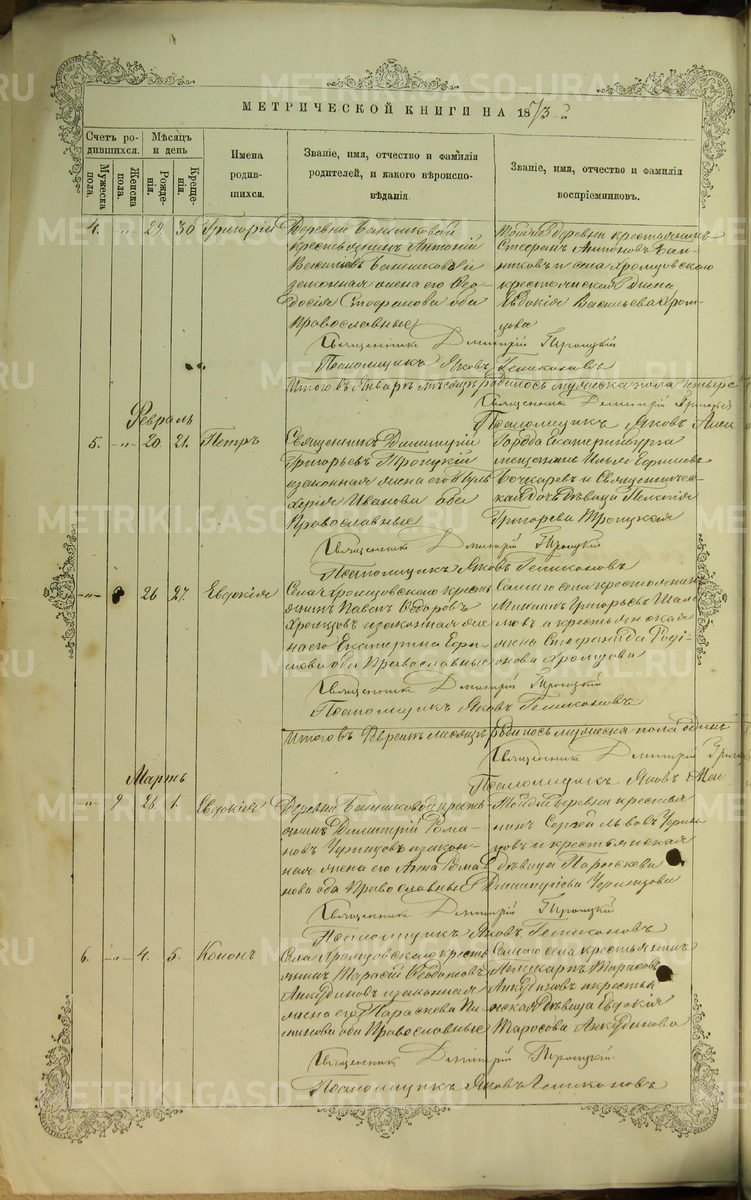 МЕТРИЧЕСКОЙ КНИГИ НА 1873-й
Счетъ ро-
дившихся.
Мужеска пола.
Женска пола.
Мѣсяцъ и день
Рожде-
нія.
Креще-
нія.
Имена
родив-
шихся.
Званіе, имя, отчество и фамилія
родителей, и какого вѣроиспо-
вѣданія.
Званіе, имя, отчество и фамилія
воспріемниковъ.
4. -„- 29. 30 Григорій
Деревни Банниковой
крестьянинъ Антоній
Васильевъ Банниковъ и
законная жена его Ѳео-
досія Стефанова оба
Православные
Той же деревни крестьянинъ
Стефанъ Антоновъ Бан-
никовъ и села Хромцовского
крестьянская
Евдокія Васильева Хром-
цова
Священникъ Димитрій Троицкій
Псаломщикъ Яковъ
Итого въ Январѣ мѣсяцѣ родилось мужеска пола четыре
Священникъ Димитрій Троицкій
Псаломщикъ Яковъ
Февраль
5. -„- 20. 21. Петръ
Священникъ Димитрій
Григорьевъ Троицкій
и законная жена его Глѵ-
керія Иванова оба
Православные
Города Екатеринбурга
мещанинъ Илья Ефимовъ
Бочкаревъ и Священническая
дочь Дѣвица Пелагія
Григорьева Троицкая
Священникъ Димитрій Троицкій
Псаломщикъ Яковъ
-„- 26 27. Евдокія
Села Хромцовского кресть-
янинъ Павелъ Ѳедоровъ
Хромцовъ и законная же-
на его Екатерина Ефи-
мова оба Православные
Самаго села крестьянинъ
Григорьевъ
и крестьянская
жена Стефанида Роді-
онова Хромцова
Священникъ Димитрій Троицкій
Псаломщикъ Яковъ
Итого въ Февралѣ мѣсяцѣ родилось мужеска пола одинъ
Священникъ Димитрій
Псаломщикъ Яковъ
Мартъ
-„- 9 28. 1. Евдокія
Деревни Банниковой кресть-
янинъ Димитрій Рома-
новъ Черницовъ и закон-
ная жена его Анна Рома-
нова оба Православные
Той же деревни крестья-
нинъ Сергей Львовъ
и крестьянская
дѣвица Параскева
Димитріева Черницова
Священникъ Димитрій Троицкій
Псаломщикъ Яковъ
6. -„- 4. 5. Кононъ
Села Хромцовского кресть-
янинъ Тарасій
Анкудиновъ и законная
жена его Параскева Ни-
китова оба Православные
Самаго села крестьянинъ
Тарасовъ
Анкудиновъ и крестьян-
ская Дѣвица Евдокія
Тарасова Анкудинова
Священникъ Димитрій Троицкій
Псаломщикъ Яковъ
METRIKI.GASO-URAL.RU